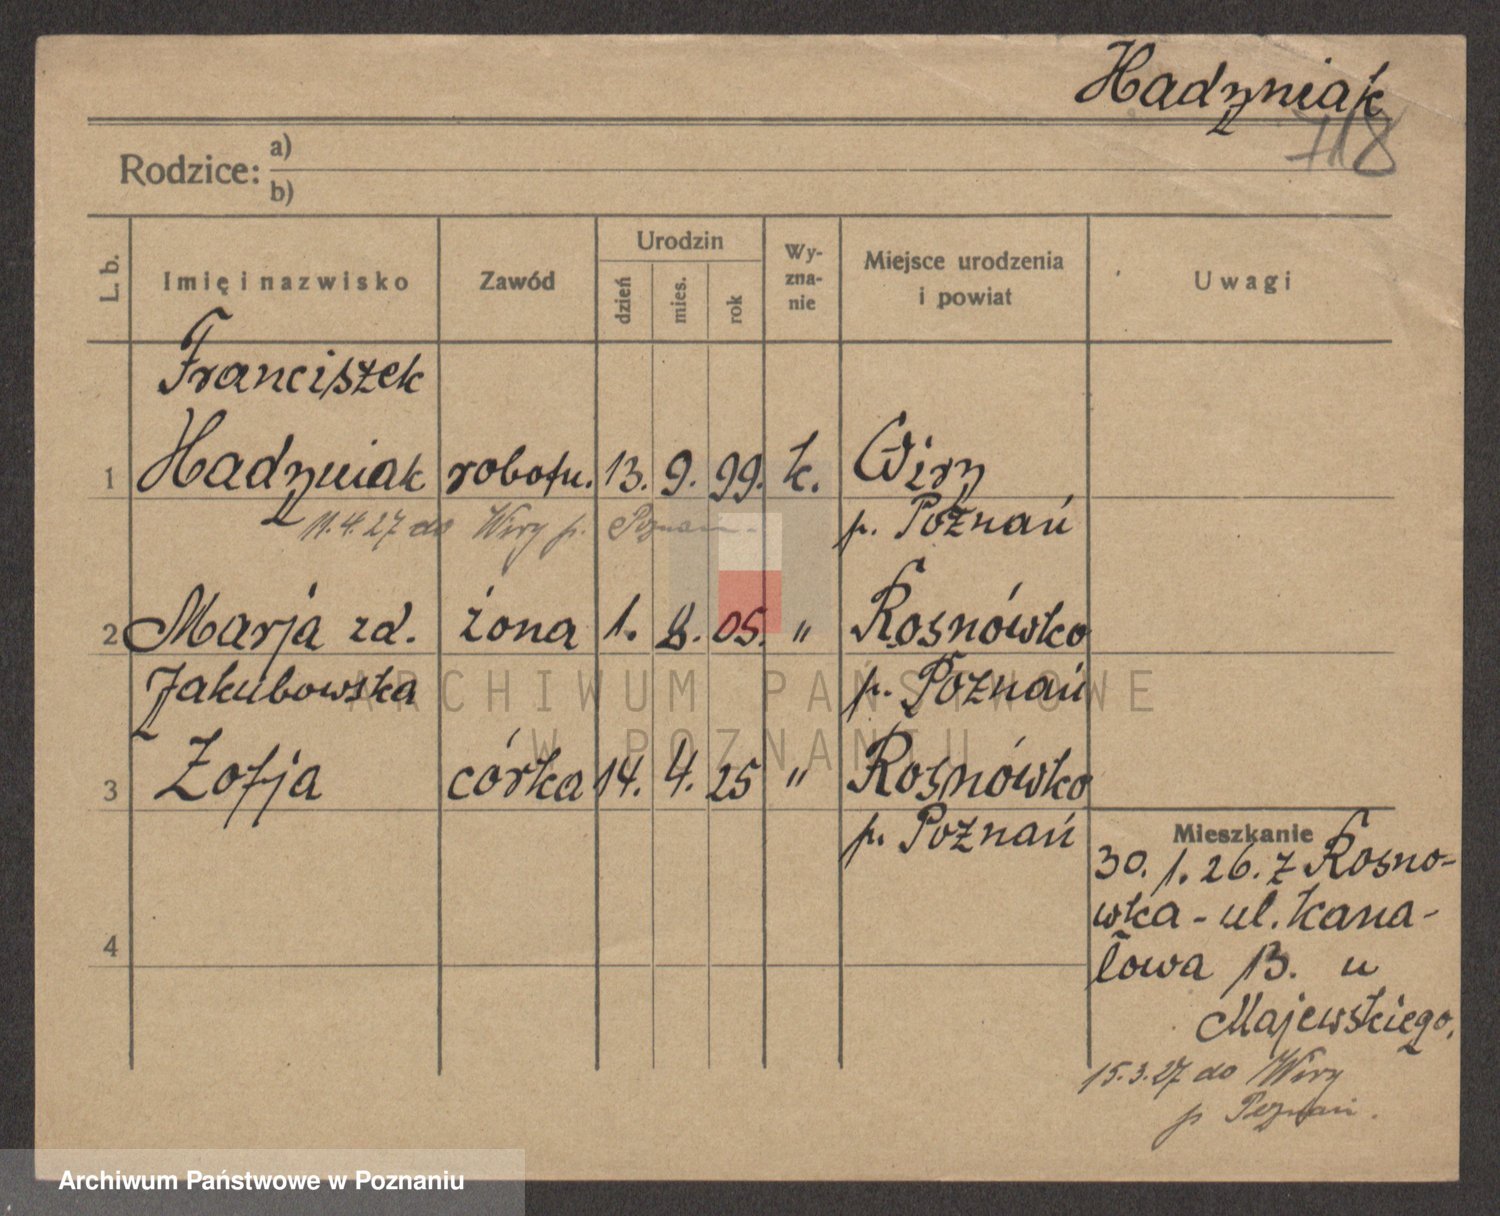 Hadzyniak
718
Rodzice: a)
b)
L. b.
Imię i nazwisko
Zawód
Urodzin
dzień
mies.
rok
Wy-
zna-
nie
Miejsce urodzenia
i powiat
Uwagi
Franciszek
1 Hadzyniak robotn. 13. 9. 99. k. Wiry
11.4.27 do Wiry p. Poznań. p. Poznań
2 Marja zd. żona 1. 8. 05. " Rosnówko
Jakubowska p. Poznań
3 Zofja córka 14. 4. 25 " Rosnówko
p. Poznań
4
Mieszkanie
30. 1. 26. z Rosno-
wka - ul. Kana-
łowa 13. u
Majewskiego.
15.3.27 do Wiry
p Poznań.
ARCHIWUM PAŃSTWOWE
W POZNANIU
Archiwum Państwowe w Poznaniu